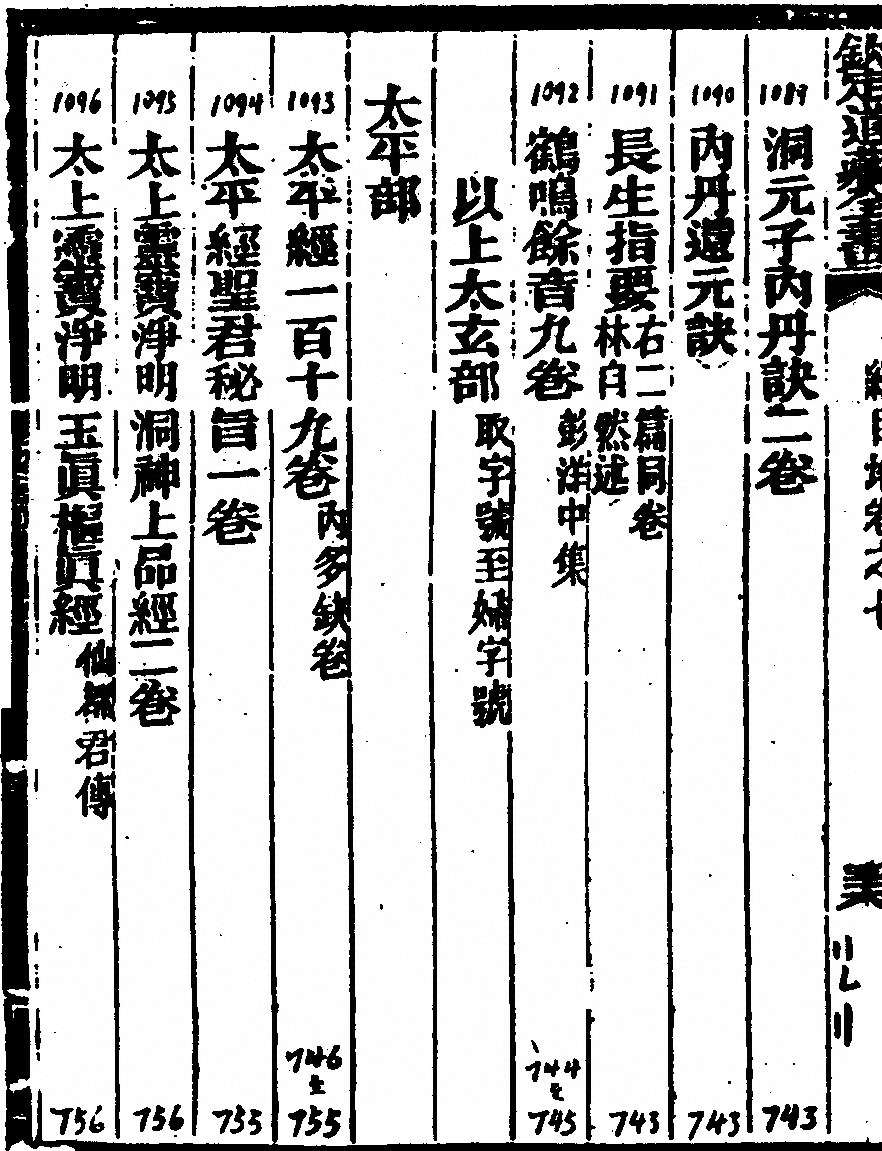 1089 洞元子內丹訣二卷 743
1090 內丹還元訣 743
1091 長生指要 右二篇同卷 林自然述 743
1092 鶴鳴餘音九卷 彭洋中集 744 至 745
以上太玄部 取字號至婦字號
太平部
1093 太平經一百十九卷 內多缺卷 746 至 755
1094 太平經聖君秘旨一卷 755
1095 太上靈寶淨明洞神上品經二卷 756
1096 太上靈寶淨明玉眞樞眞經 仙都君傳 756